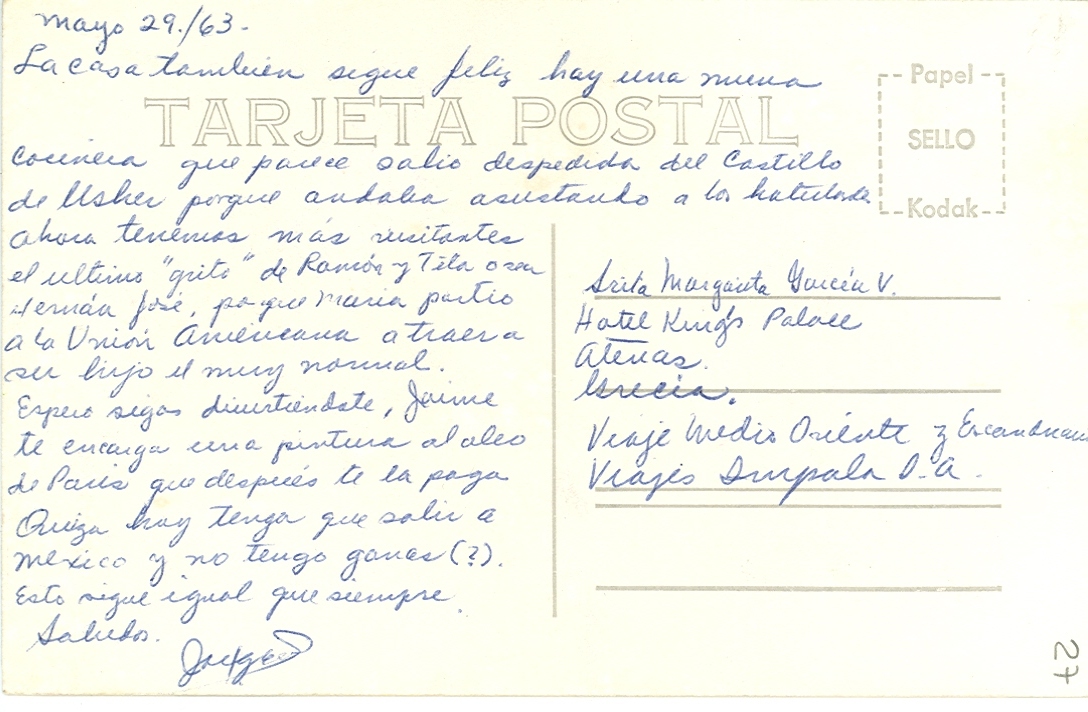 Mayo 29./63-
La casa también sigue feliz hay una nueva
TARJETA POSTAL
cocinera que parece salio despedida del Castillo
de Usher porque andaba asustando a los
ahora tenemos más visitantes
el ultimo "grito" de Ramón y Tita o sea
Hernán José, porque Maria partio
a la Unión Americana a traer a
su hijo el muy normal.
Espero sigas divirtiendote, Jaime
te encarga una pintura al oleo
de París que después te la paga
Quiza hoy tenga que salir a
México y no tengo ganas (?).
Esto sigue igual que siempre.
Saludos.
Jorge
Papel
SELLO
Kodak
Srita Margarita García V.
Hotel King's Palace
Atenas.
Grecia.
Viaje Medio Oriente y
Viajes Impala S.A.
27